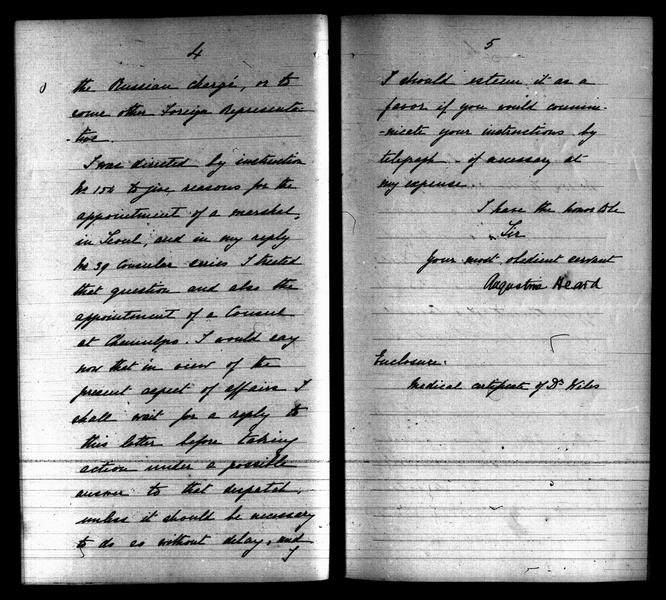 4
the Russian chargé, or to
some other Foreign Representa-
-tive.
I was directed by instruction
No 154 to give reasons for the
appointment of a marshal,
in Seoul, and in my reply
No 39 Consular series I treated
that question and also the
appointment of a Consul
at Chemulpo. I would say
now that in view of the
present aspect of affairs I
shall wait for a reply to
this letter before taking
action under a possible
answer to that despatch,
unless it should be necessary
to do so without delay, and
5
I should esteem it as a
favor if you would commu-
-nicate your instructions by
telegraph - if necessary at
my expense.
I have the honor to be
Sir
Your most obedient servant
Augustine Heard
Enclosure.
Medical certificate of Dr Wiles